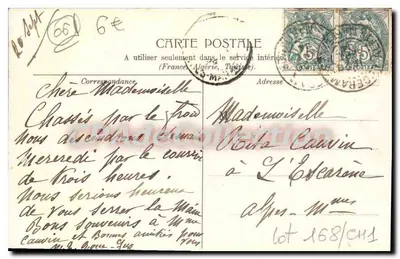 20 Sept
66
6€
CARTE POSTALE
A utiliser seulement dans le service intérieur
(France, Algérie, Tunisie)
Correspondance
Adresse
Chère Mademoiselle
Chassés par le froid
nous descendrons
Mercredi par le courrier
de trois heures.
Nous serions heureux
de vous serrer la main
Bons souvenirs à Mme
Cauvin et Bonnes amitiés pour
vous
Mademoiselle
Rita Cauvin
à L'Escarène
Alpes-Mmes
Lot 168/CH1